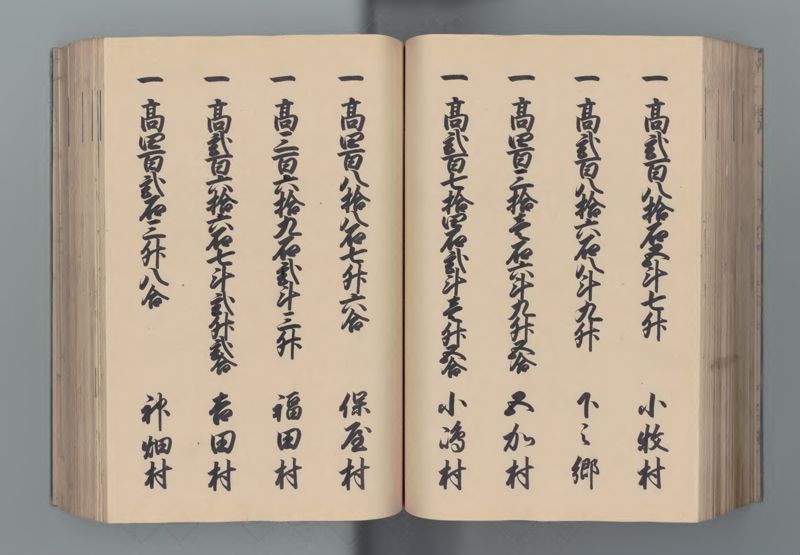 一 高弐百八拾石五斗七升 小牧村
一 高弐百八拾六石八斗九升 下之郷
一 高四百三拾壱石六斗九升五合 五加村
一 高弐百七拾四石弐斗壱升五合 小嶋村
一 高四百八拾八石七升六合 保屋村
一 高三百六拾九石弐斗三升 福田村
一 高弐百六拾六石七斗弐升弐合 吉田村
一 高四百弐石三升八合 神畑村